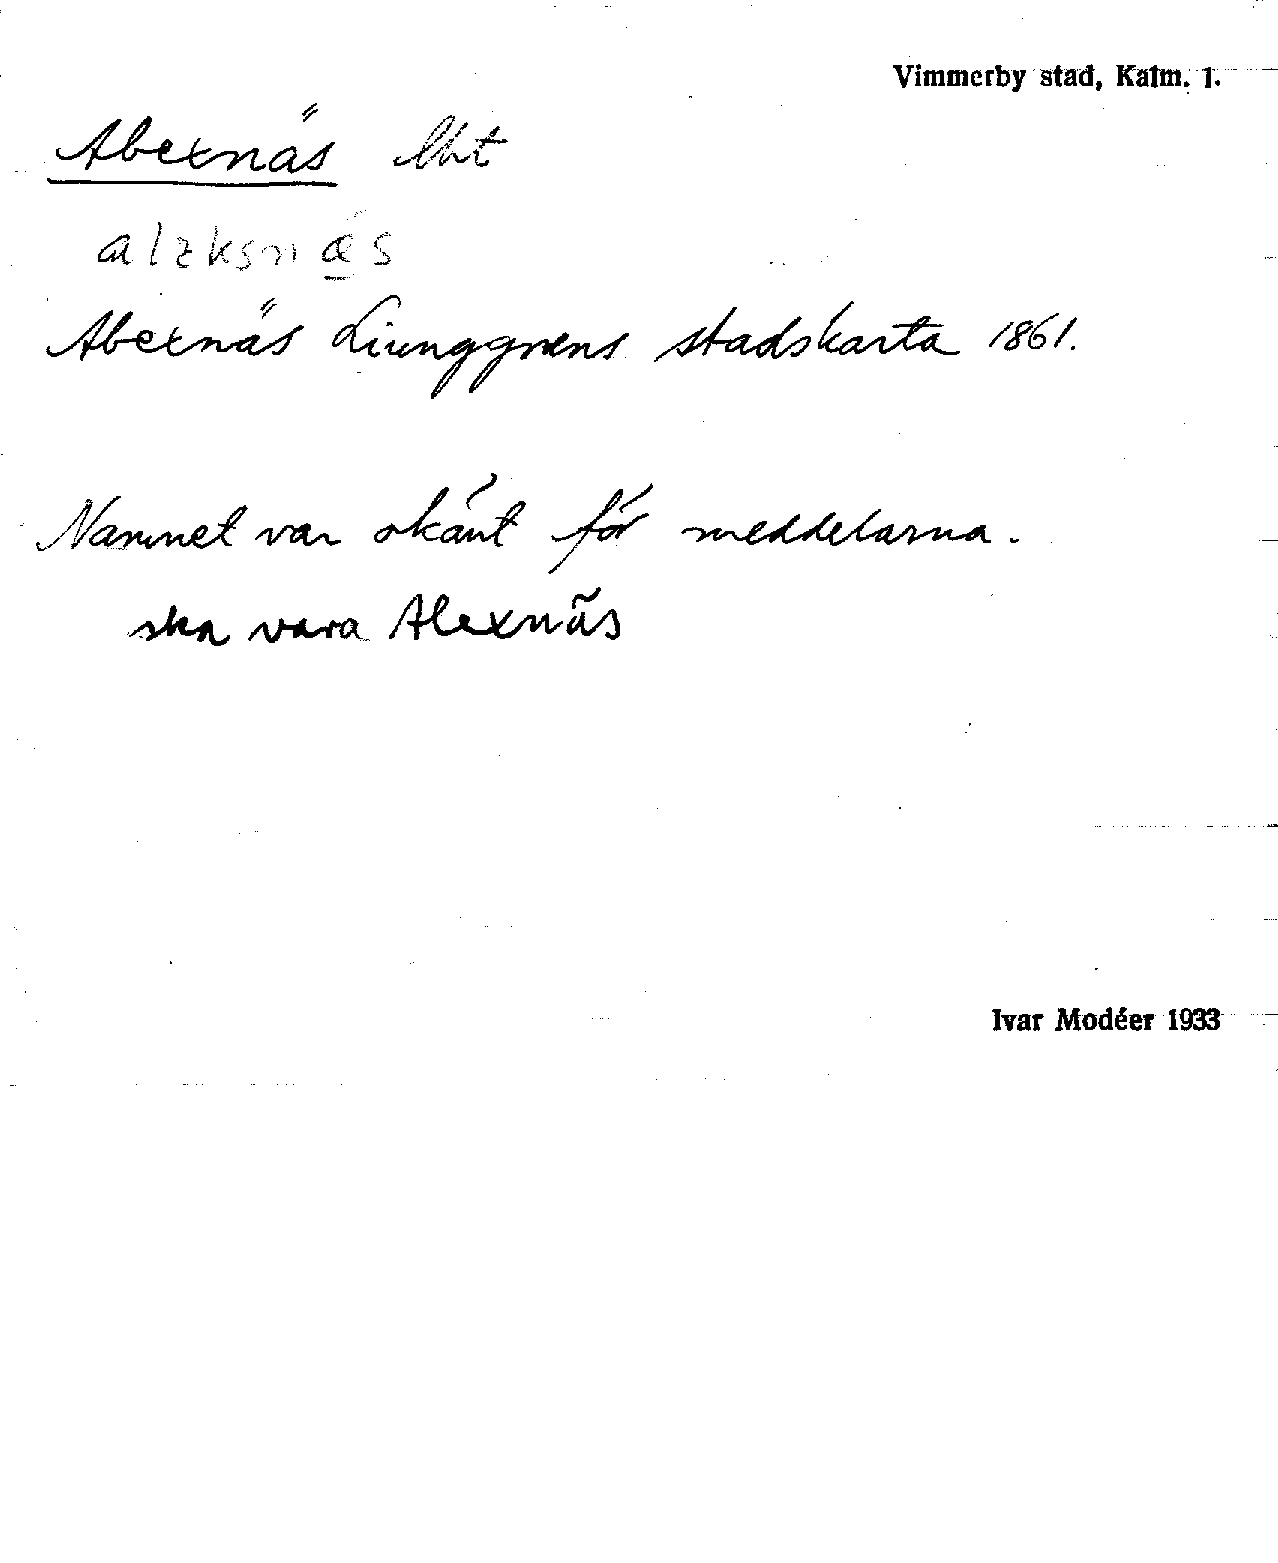 Vimmerby stad, Kalm. l.
Abexnäs lht
alzksnæs
Abexnäs Liunggrens stadskarta 1861.
Namnet var okänt för meddelarna.
ska vara Alexnäs
Ivar Modéer 1933